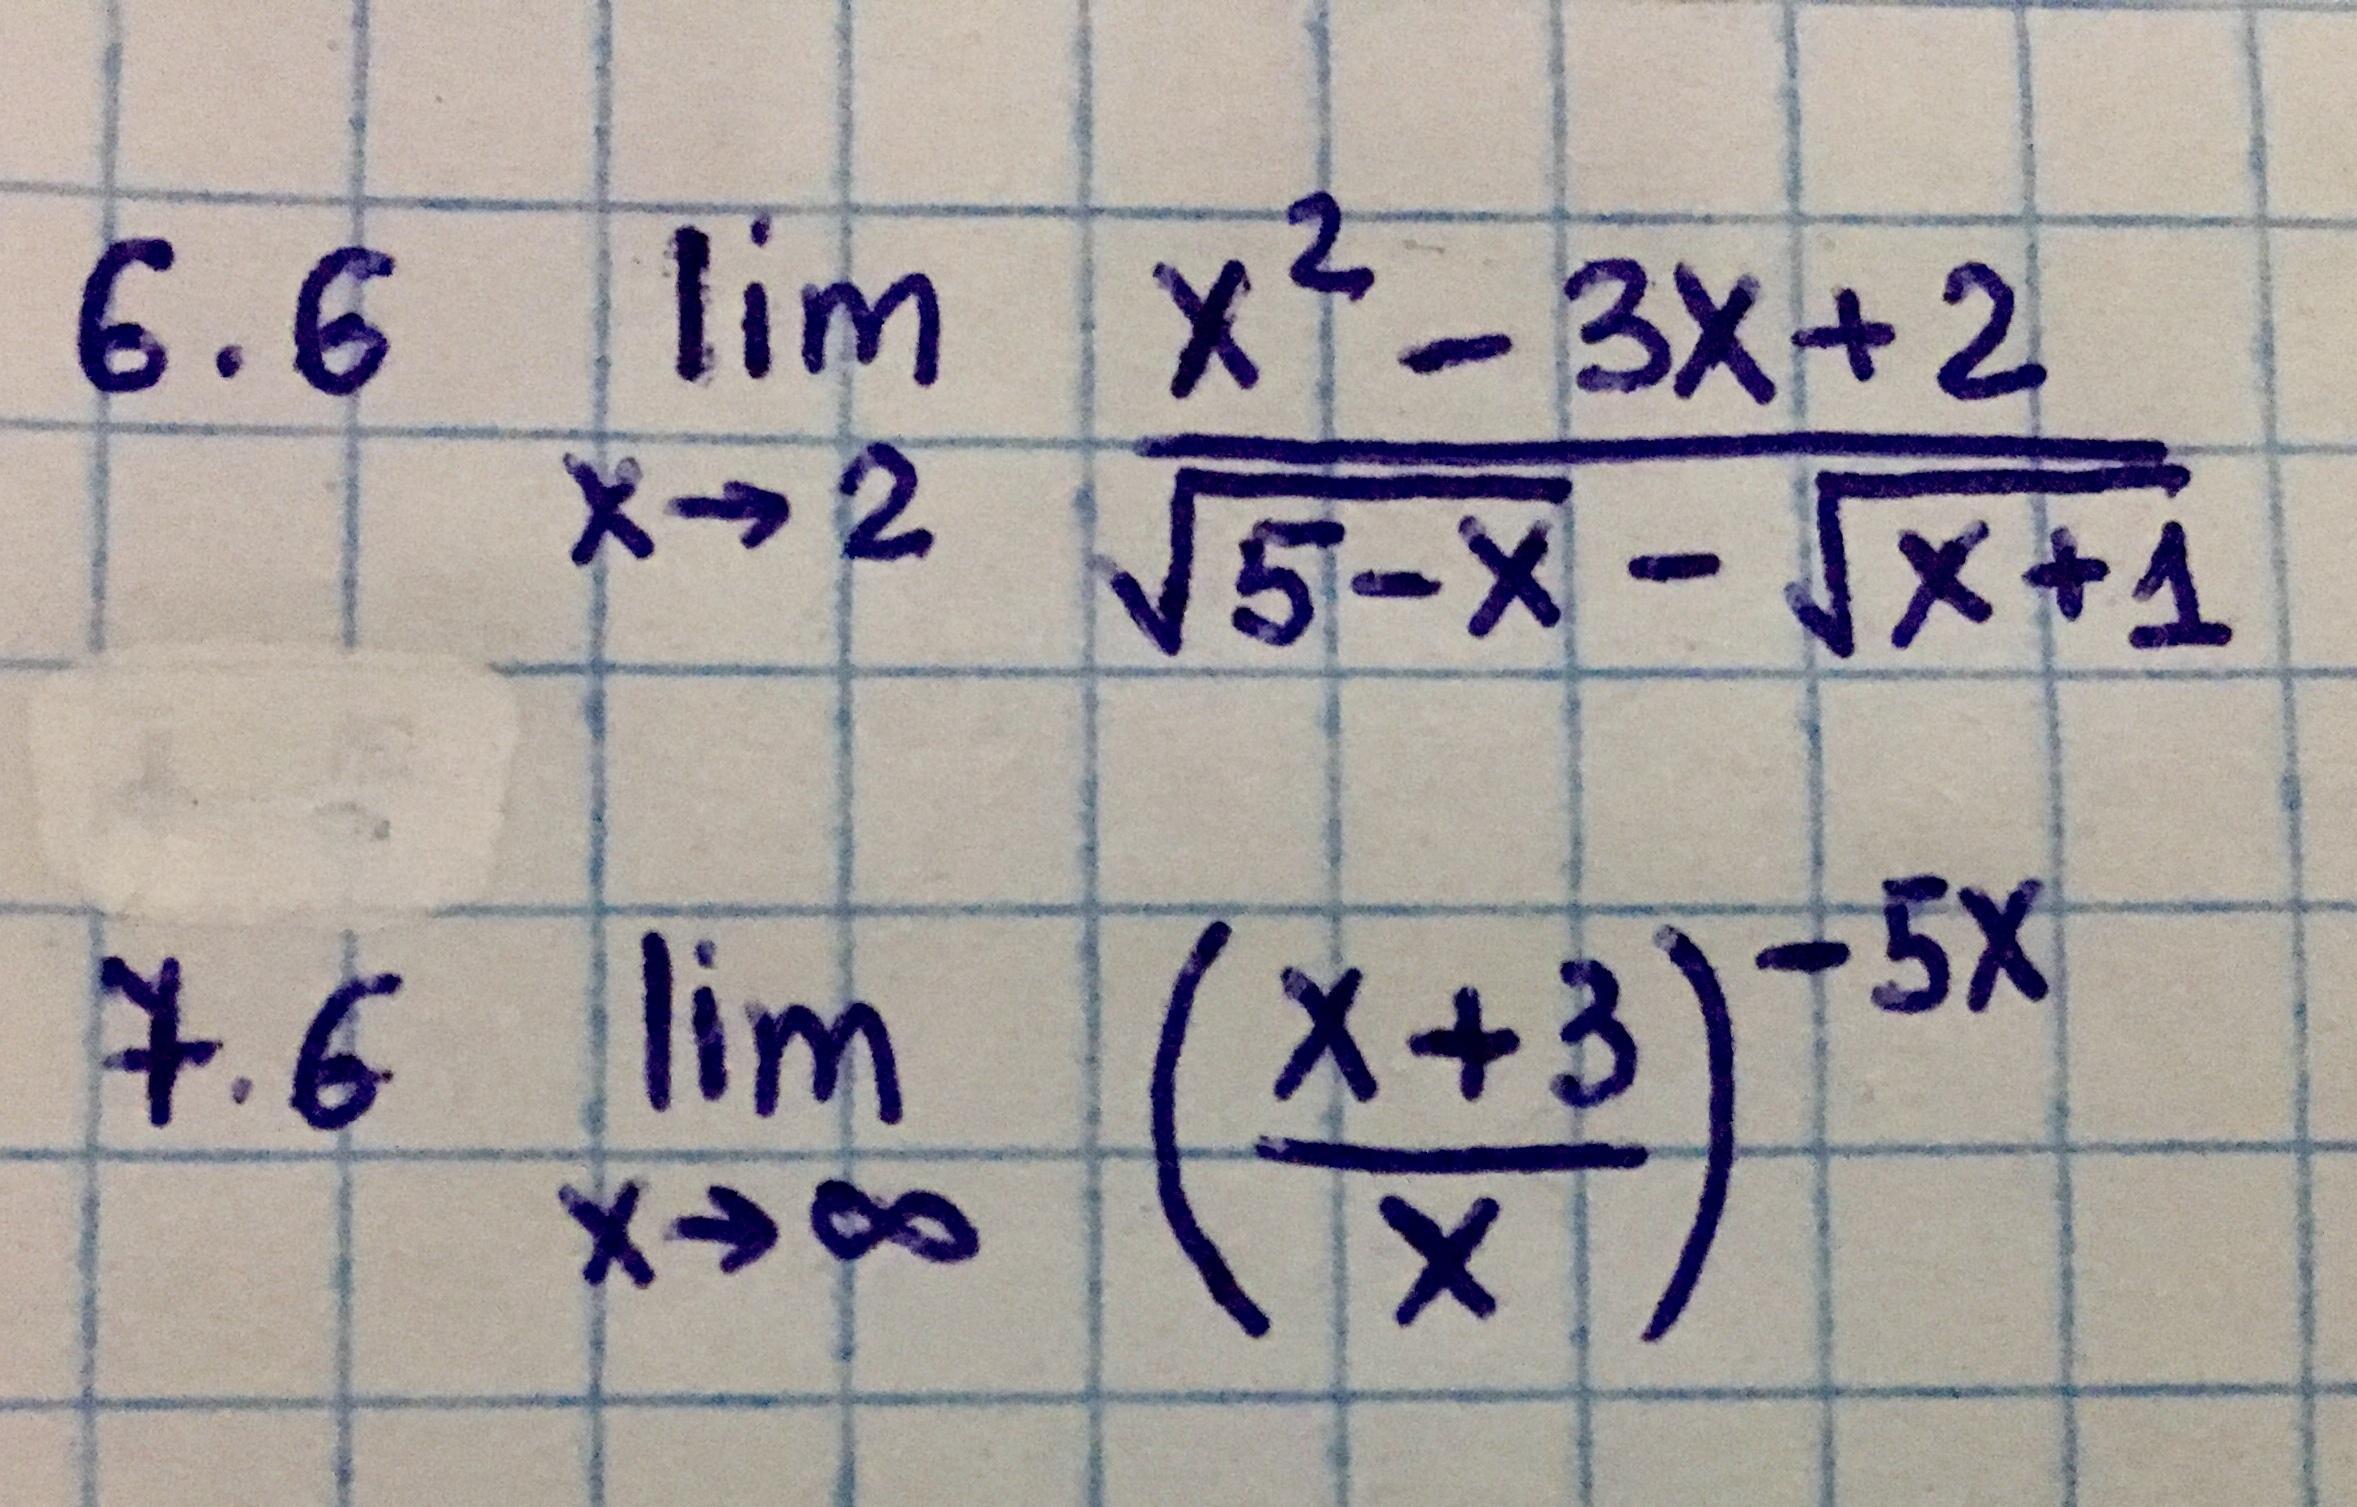 6.6 lim x→2 (x² - 3x + 2) / (√(5-x) - √(x+1))
7.6 lim x→∞ ((x+3)/x)^(-5x)